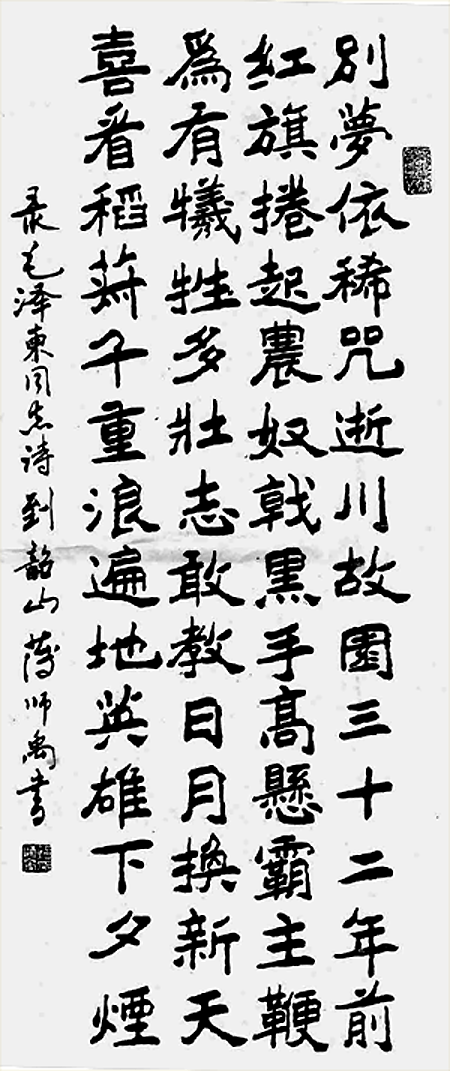 别夢依稀咒逝川故園三十二年前
红旗捲起農奴戟黑手高懸霸主鞭
爲有犧牲多壯志敢教日月換新天
喜看稻菽千重浪遍地英雄下夕煙
录毛泽東同志诗到韶山师禹书